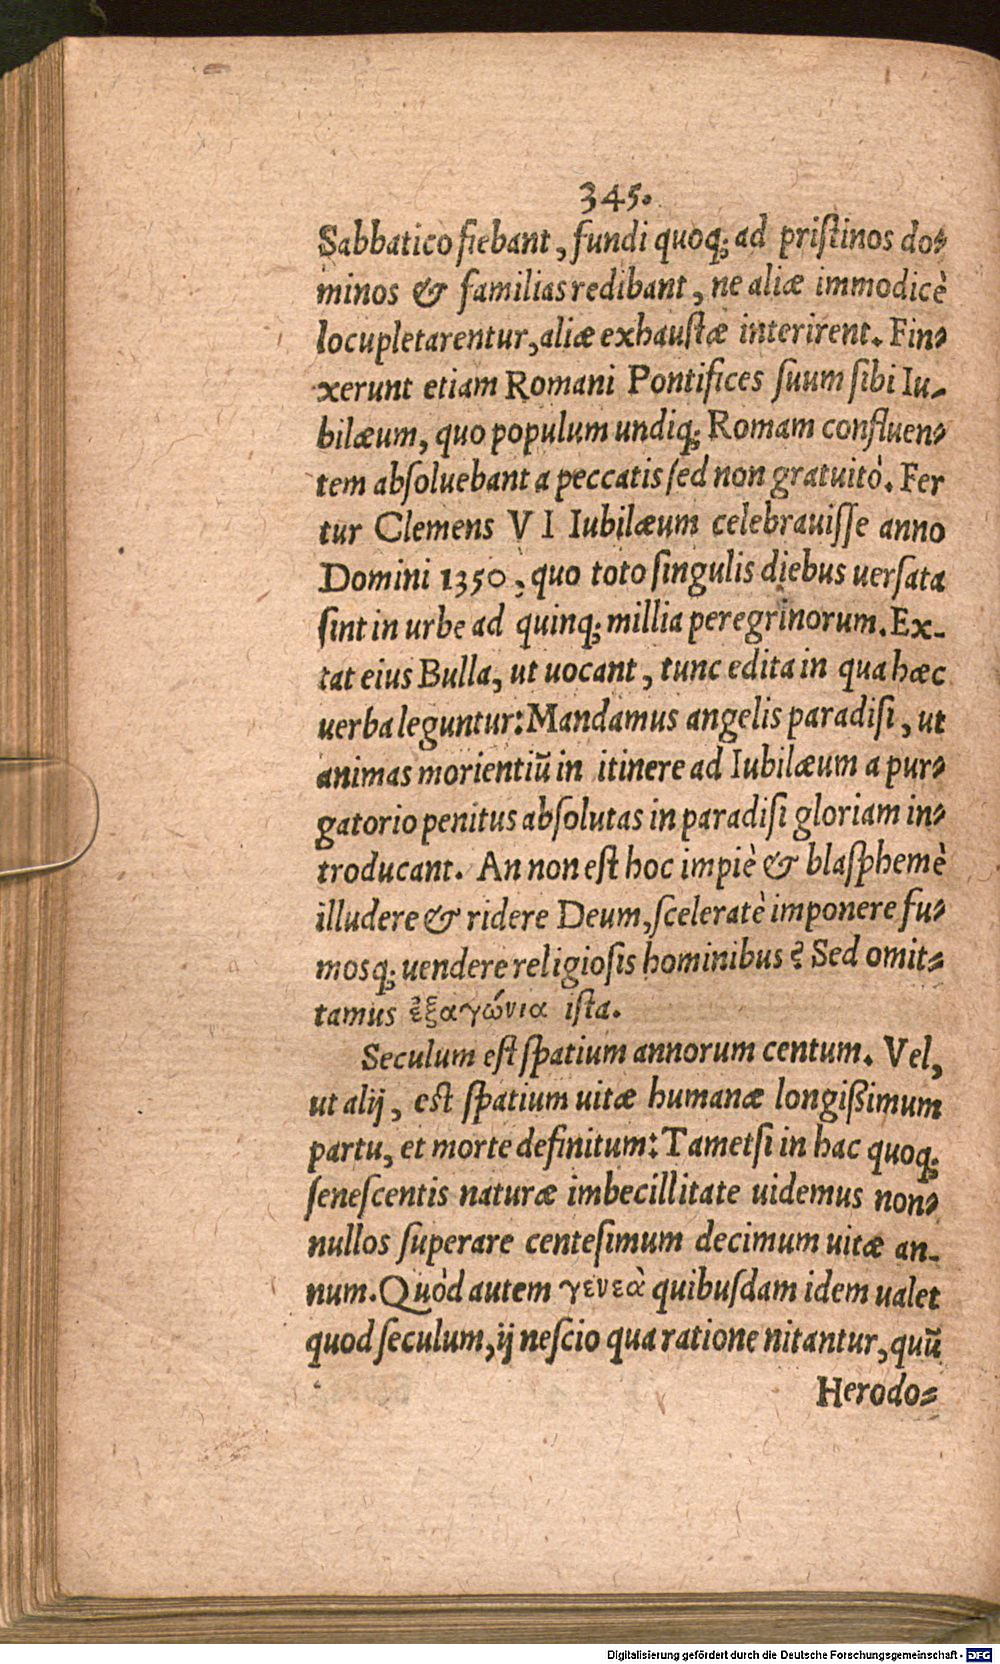 345.
Sabbatico fiebant, fundi quoq; ad pristinos do-
minos & familias redibant, ne aliæ immodicè
locupletarentur, aliæ exhaustæ interirent. Fin-
xerunt etiam Romani Pontifices suum sibi Iu-
bilæum, quo populum undiq; Romam confluen-
tem absoluebant a peccatis sed non gratuitò. Fer
tur Clemens VI Iubilæum celebrauisse anno
Domini 1350, quo toto singulis diebus uersata
sint in urbe ad quinq; millia peregrinorum. Ex-
tat eius Bulla, ut uocant, tunc edita in qua hæc
uerba leguntur: Mandamus angelis paradisi, ut
animas morientiū in itinere ad Iubilæum a pur-
gatorio penitus absolutas in paradisi gloriam in-
troducant. An non est hoc impiè & blasphemè
illudere & ridere Deum, sceleratè imponere fu-
mosq; uendere religiosis hominibus? Sed omit-
tamus ἐξαγώνια ista.
Seculum est spatium annorum centum. Vel,
ut alij, est spatium uitæ humanæ longißimum
partu, et morte definitum: Tametsi in hac quoq;
senescentis naturæ imbecillitate uidemus non-
nullos superare centesimum decimum uitæ an-
num. Quòd autem γενεὰ quibusdam idem ualet
quod seculum, ij nescio qua ratione nitantur, quū
Herodo-
Digitalisierung gefördert durch die Deutsche Forschungsgemeinschaft - DFG